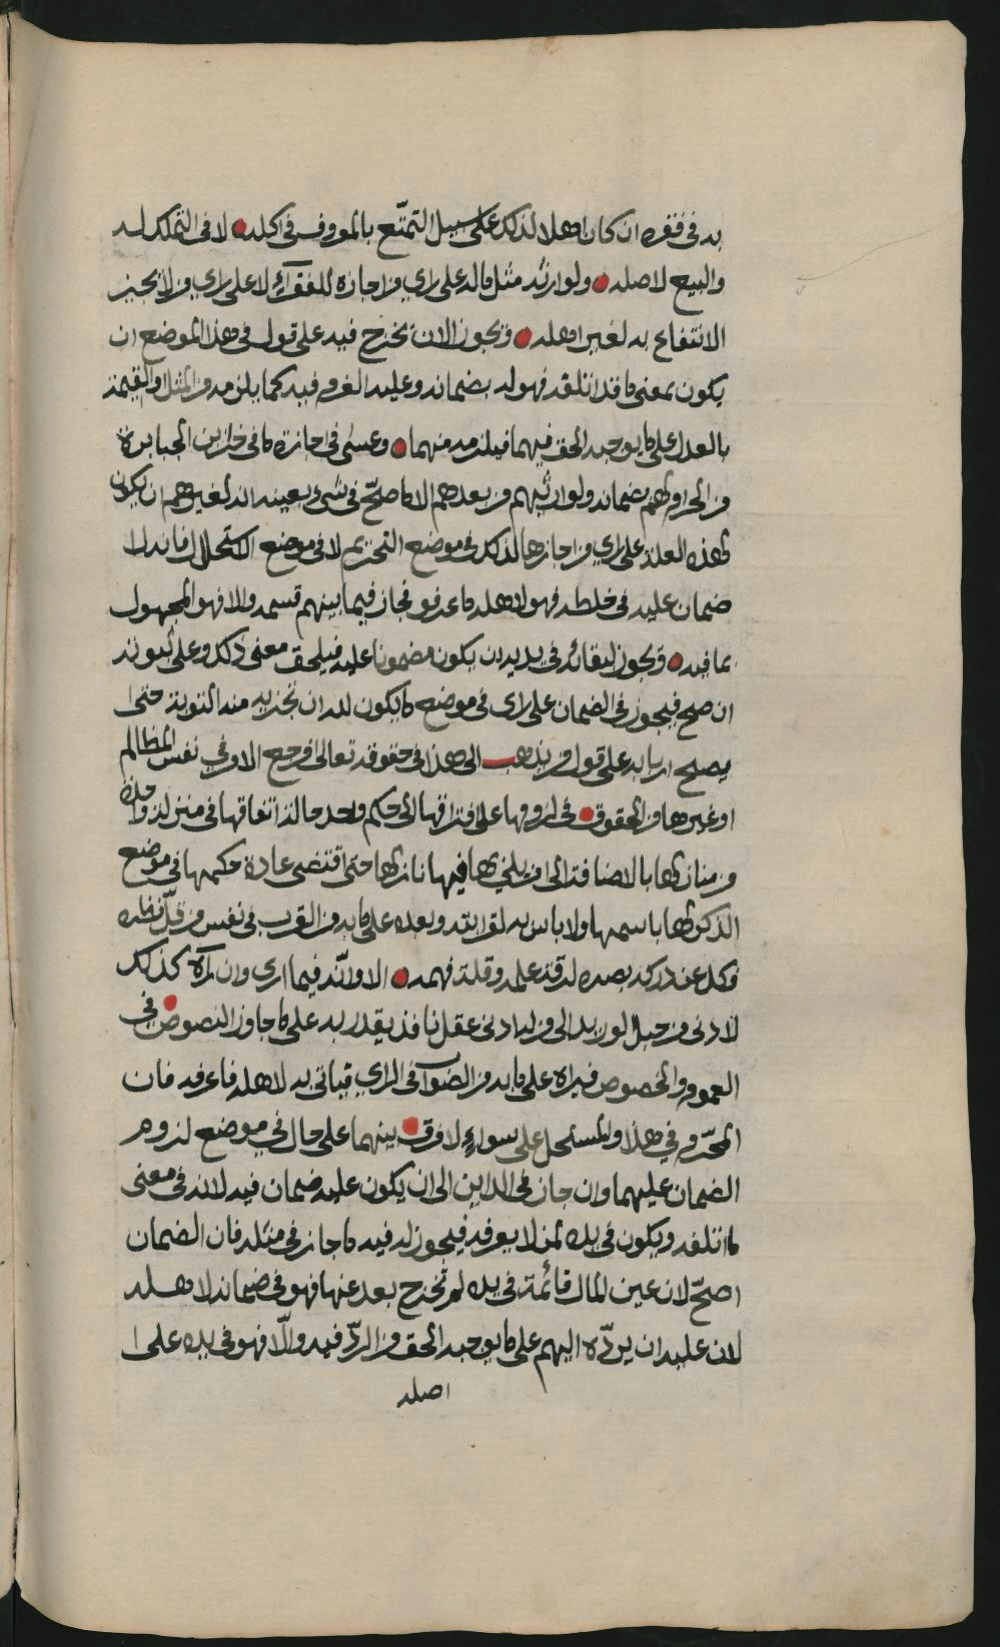 به في فقره ان كان اهلا لذلك على سبيل التمتّع بالمعروف في اكله لا في التملك له
والبيع لاصله ولوارثه مثل ماله على راي من اجازه للفقرآء لا على راي من لا يجيز
الانتفاع به لغير اهله ويجوز لان يخرج فيه على قول في هذا الموضع ان
يكون بمعنى ما قد اتلفه فهو له بضمانه وعليه الغرم فيه كما يلزمه من المثل او القيمة
بالعدل على ما يوجبه الحق فيهما فيلزمه منهما وعسى في اجازة ما في خزاين الجبابرة
من الحرام لهم بضمانه ولوارثهم من بعدهم الا ما صحّ في شيء بعينه انه لغيرهم ان يكون
لهذه العلة على راي من اجازها لذلك في موضع التحريم لا في موضع الاستحلال فانه لا
ضمان عليه في خلطه فهو لاهله ما عرفو فجاز فيما بينهم قسمه والا فهو المجهول
بما فيه ويجوز لبقائه في يديه ان يكون مضمونا عليه فيلحقه معنى ذلك وعلى ثبوته
ان صح فيجوز في الضمان على راي في موضع ما يكون لله ان تجزيه منه التوبة حتى
يصلح اربابه على قول من يذهب الى هذا في حقوقه تعالى فرجع الامر في نفس المظالم
او غيرها من الحقوق في لزومها على افتراقها الى حكم واحد حالة اتفاقها في منزلة واحدة
من منازلها بالاضافة الى من بلي بها فيها نازلها حتى اقتضى عادة حكمها في موضع
الذكر لها باسمها ولا باس به لقرابته وبعده على ما به من القرب في نفس من قلّ نظره
وكل عن دركه بصره لرقة علمه وقلة فهمه الا وانّه فيما ارى وان رآه كذلك
لادنى من حبل الوريد الى من له ادنى عقل نافذ يقدر به على ما جاوز النصوص في
العموم والخصوص فيراه على ما به من الصواب في الراي فياتي به لاهله فاعرفه فان
المحرّم في هذا والمستحل على سواء لا فرق بينهما على حال في موضع لزوم
الضمان عليهما وان جاز في الداين الى ان يكون عليه ضمان فيه لانه في معنى
ما اتلفه ويكون في يده لمن لا يعرفه فيجوز له فيه ما جاز في مثله فان الضمان
اصحّ لان عين المال قائمة في يده لم تخرج بعد عنها فهو في ضمانه لاهله
لان عليه ان يردّه اليهم على ما يوجبه الحق من الردّ فيه والّا فهو في يده على
اصله